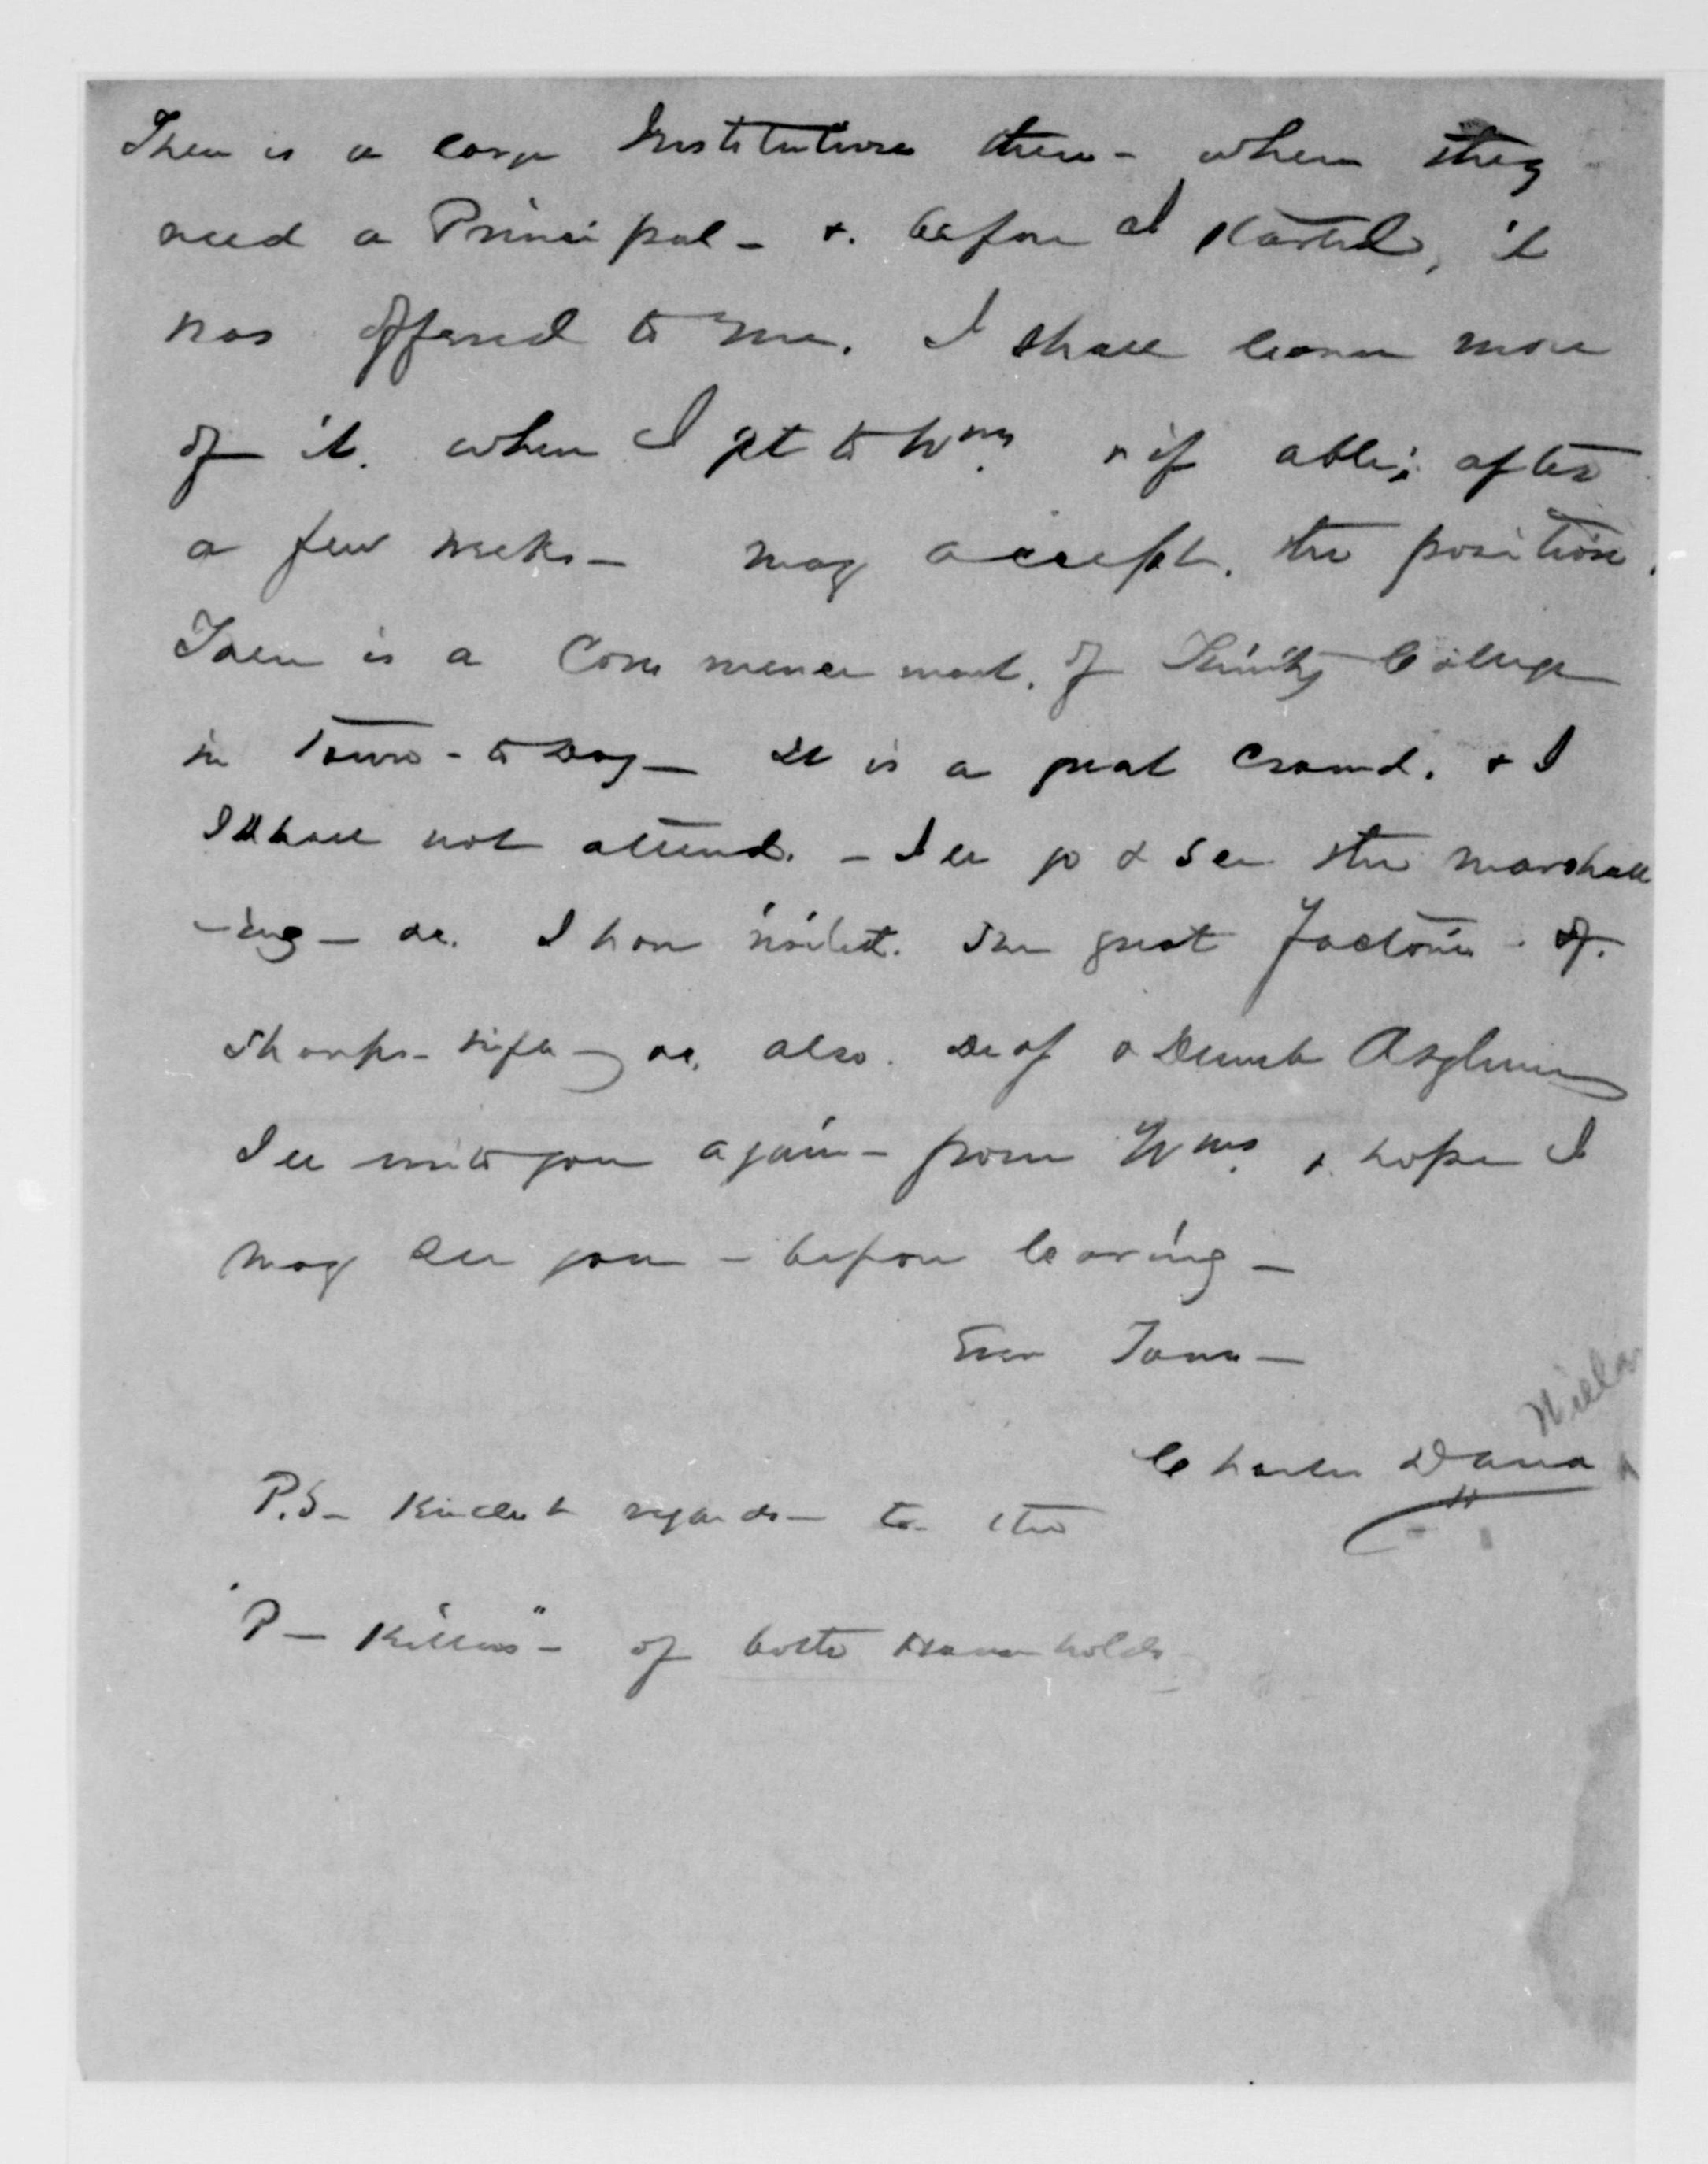 There is a large Institution there - where they
need a Principal - & before I started, it
was offered to me. I shall learn more
of it. when I get to Wms. & if able; after
a few weeks - may accept. the position.
There is a Commencement. of Trinity College
in Town - to Day - It is a great Crowd. & I
I shall not attend. - I'll go & see the marshall
-ing - &c. I have visited. the great Factories. of.
Sharps - rifle - &c. also. Deaf & Dumb Asylum
I'll write you again - from Wms. & hope I
may see you - before leaving -
Ever Yours -
Charles Dana
P.S - Kindest regards - to the
"P - Killers" - of both Households